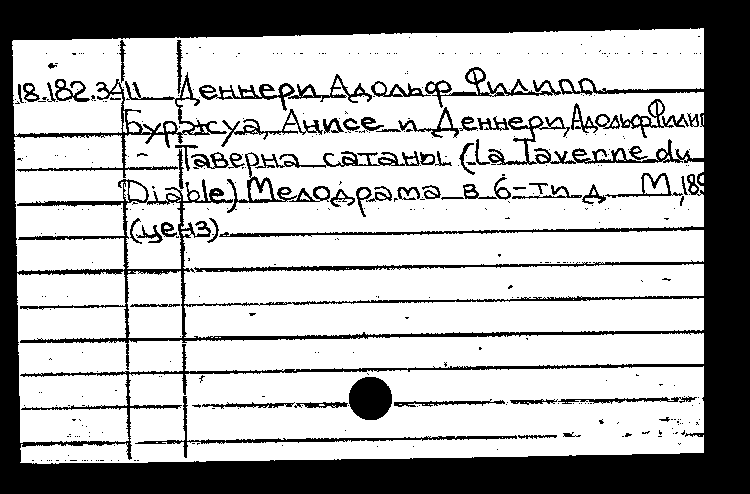 18.182.3411 Деннери, Адольф Филипп.
Буржуа, Анисе и Деннери, Адольф Филип
- Таверна сатаны. (La Taverne du
Diable) Мелодрама в 6-ти д. М., 189
(ценз).